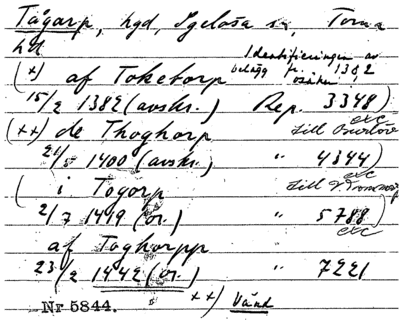 Tågarp, hgd, Igelösa sn, Torna
hd
Identifieringen av
belägg fr. 1382
osäker!
(x) af Toketorp
15/2 1382 (avskr.) Rep. 3348)
exc
(xx) de Thoghorp till
21/5 1400 (avskr.) " 4344)
exc
(i Togorp till V.
2/7 1419 (or.) " 5788)
exc
af Toghorpp
23/2 1442 (or.) " 7221
xx) Vänt
Nr 5844.